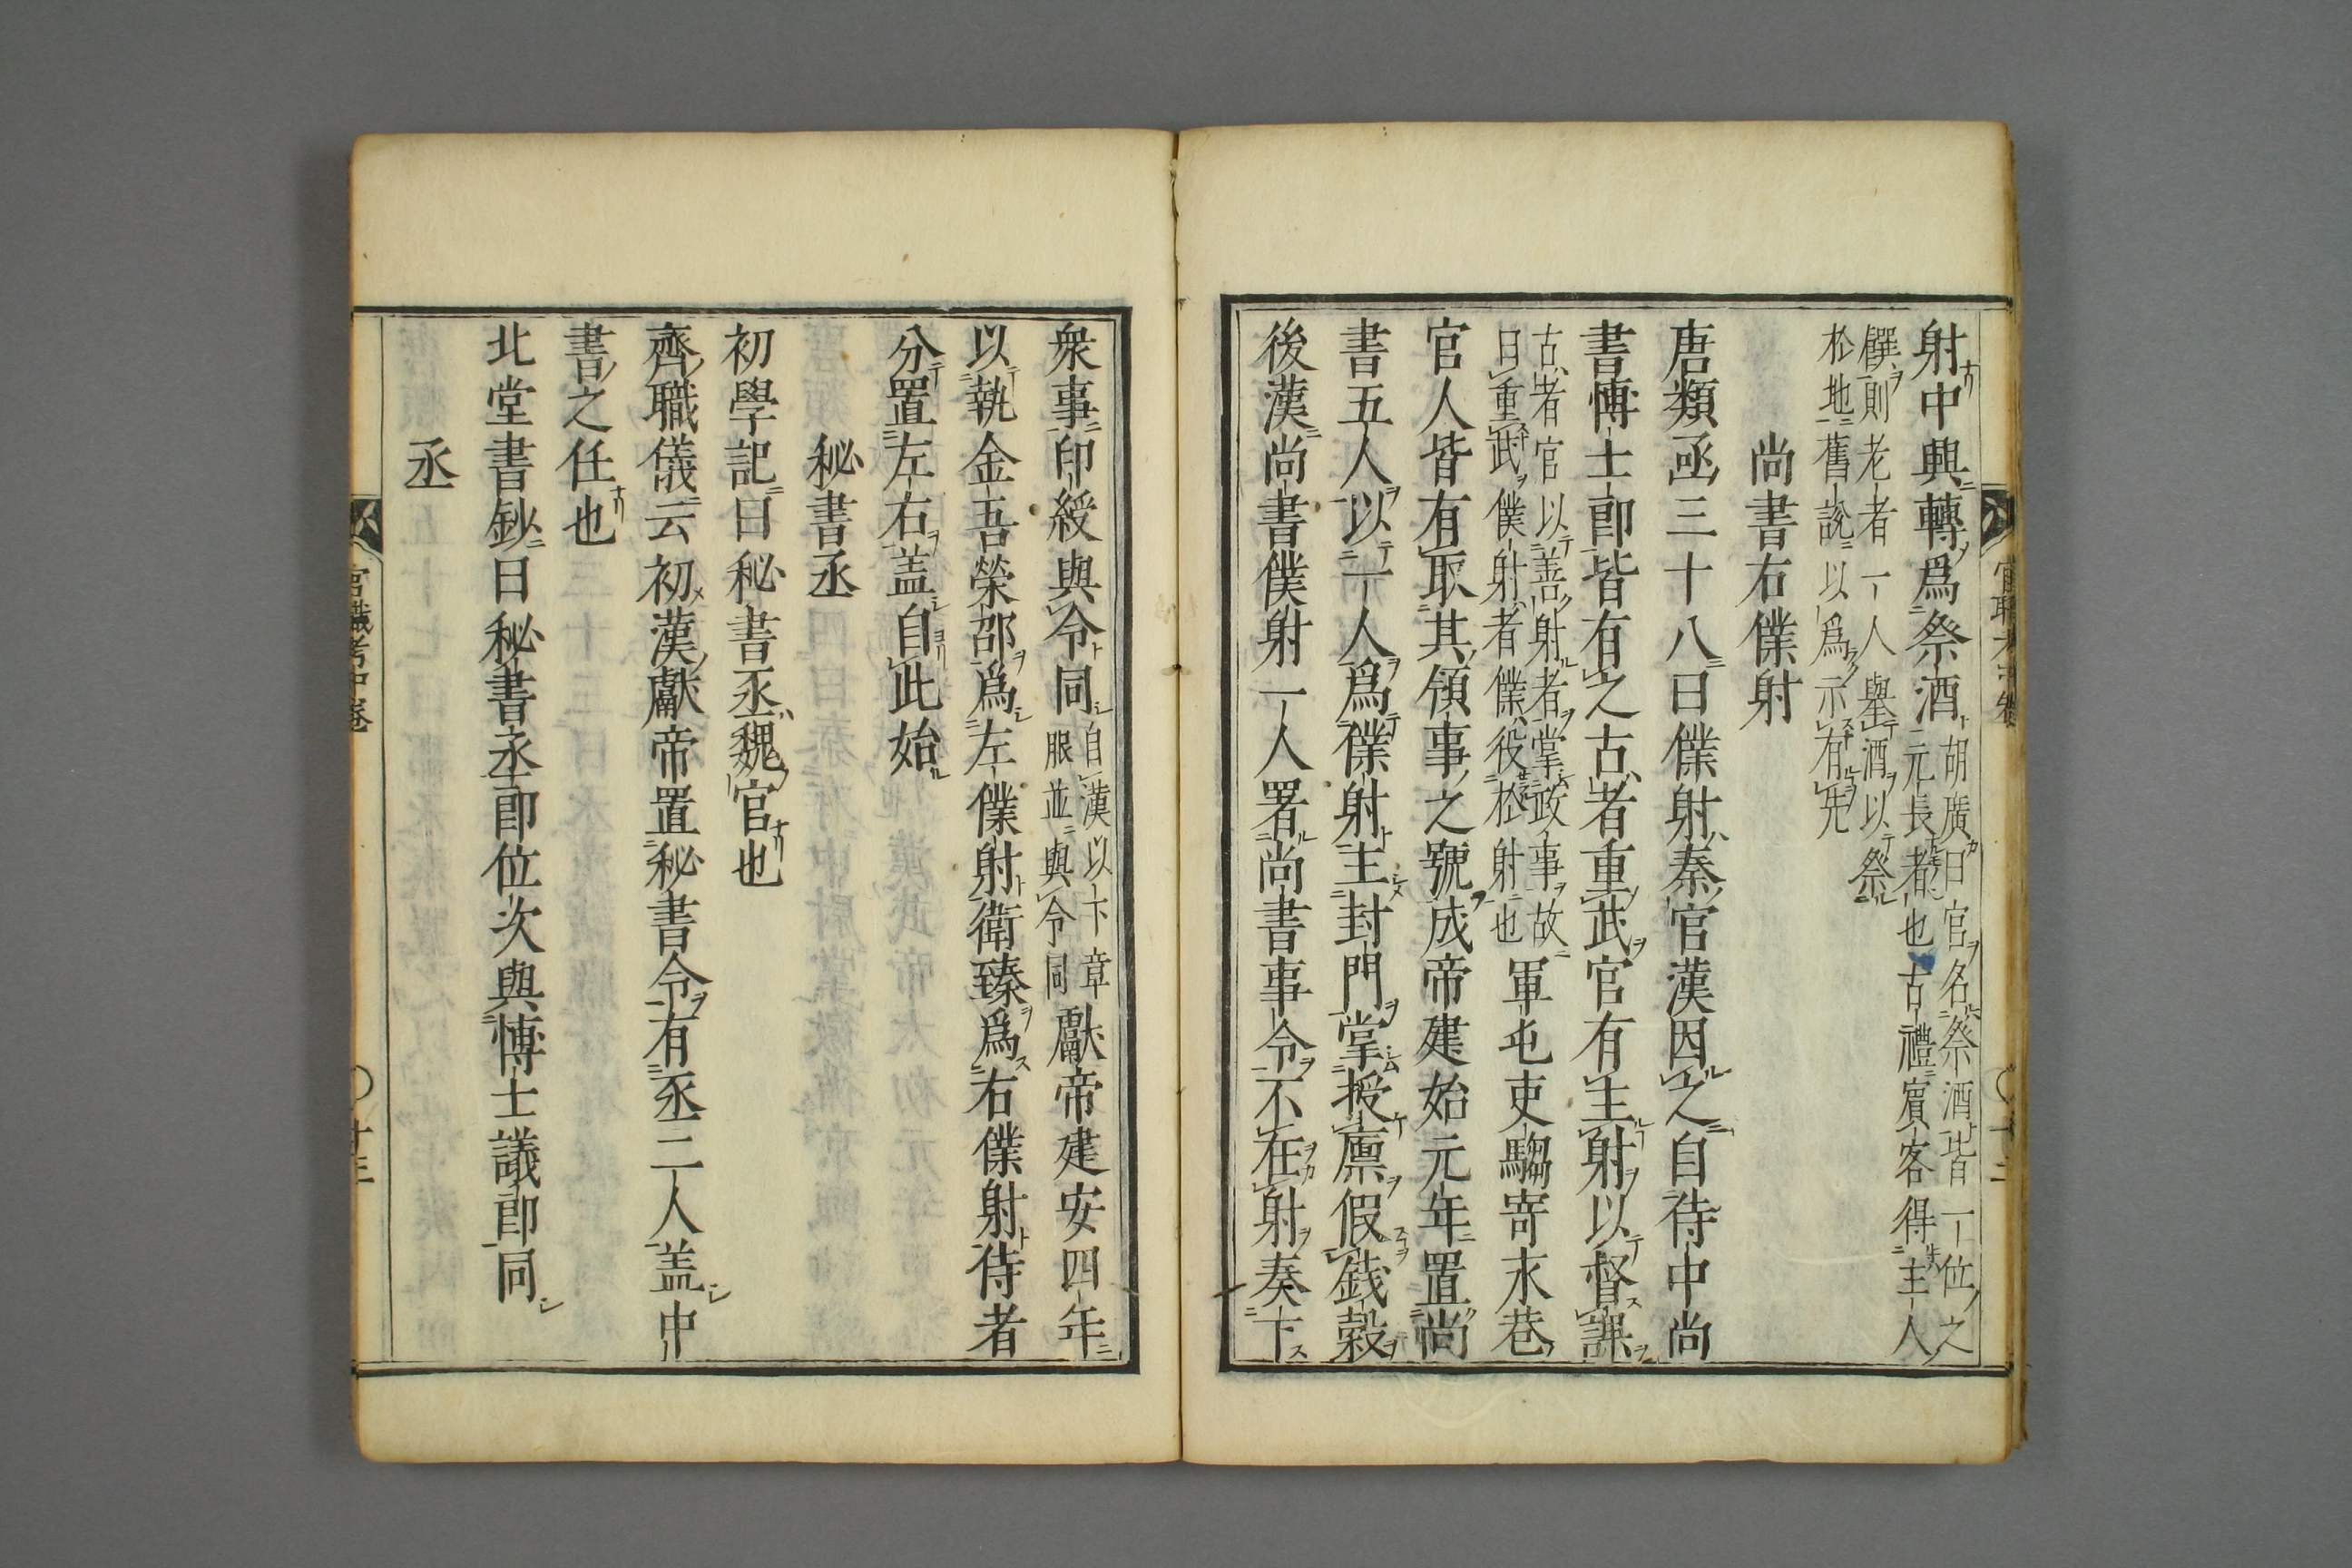 射中興轉爲祭酒胡廣曰官名祭酒皆一位之
元長者也古禮賓客得主人
饌則老者一人舉酒以祭
於地舊說以爲示有先
尚書右僕射
唐類函三十八曰僕射秦官漢因之自待中尚
書博士郎皆有之古者重武官有主射以督課
古者官以善射者掌政事故
曰重武僕射者僕役於射也軍屯吏騶寄永巷
官人皆有取其領事之號成帝建始元年置尚
書五人以一人爲僕射主封門掌授廩假錢穀
後漢尚書僕射一人署尚書事令不在射奏下
衆事印綬與令同自漢以下章
服並與令同獻帝建安四年
以執金吾榮邵爲左僕射衛臻爲右僕射待者
分置左右盖自此始
秘書丞
初學記曰秘書丞魏官也
齊職儀云初漢獻帝置秘書令有丞二人盖中
書之任也
北堂書鈔曰秘書丞郎位次與博士議郎同
丞
官職考中卷
十三